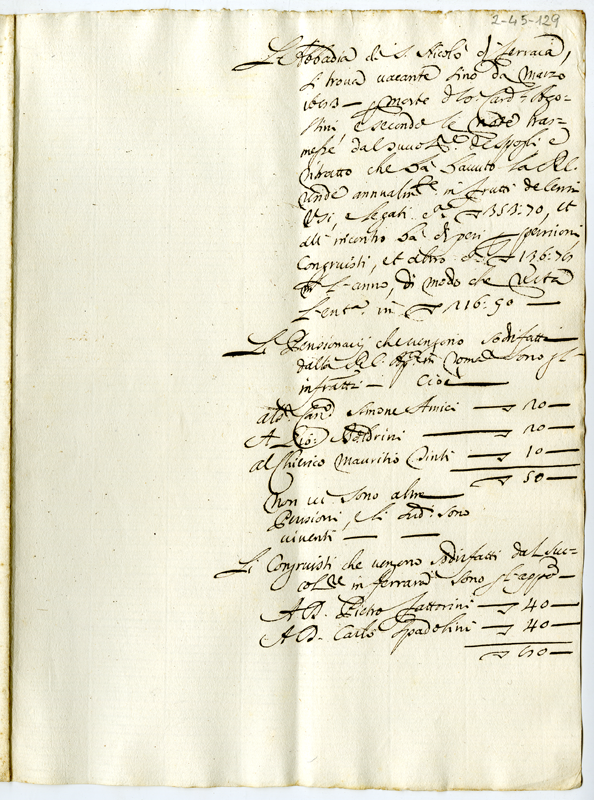 2-45-129
L'Abbadia di S. Nicolò di Ferrara,
si trova vacante sino da Marzo
morte d. Card. Ago-
stini, e secondo le note tras-
messe dal Succoll.re de Spogli è
ritratto che ha havuto la R.C.
rende annualm.te in frutti de Censi
Usi, e legati ▽ 353:70, et
all'incontro ha di pesi pensioni
Congruisti, et altro ▽ 136:76
l'anno, di modo che resta
l'ent.a in ▽ 216:90
Li Pensionarij che vengono sodisfatti
dalla R.C. in Roma sono gl'
infratti Cioè
Simone Amici ▽ 20
A Gio: Boldrini ▽ 20
al Chierico Mauritio Cinti ▽ 10
▽ 50
Non vi sono altre
Pensioni, e li sud.i sono
viventi
Li Congruisti che vengono sodisfatti dal Suc-
coll.re in Ferrara sono gl'appo
A D. Pietro Fattorini ▽ 40
A D. Carlo Spadolini ▽ 40
▽ 80